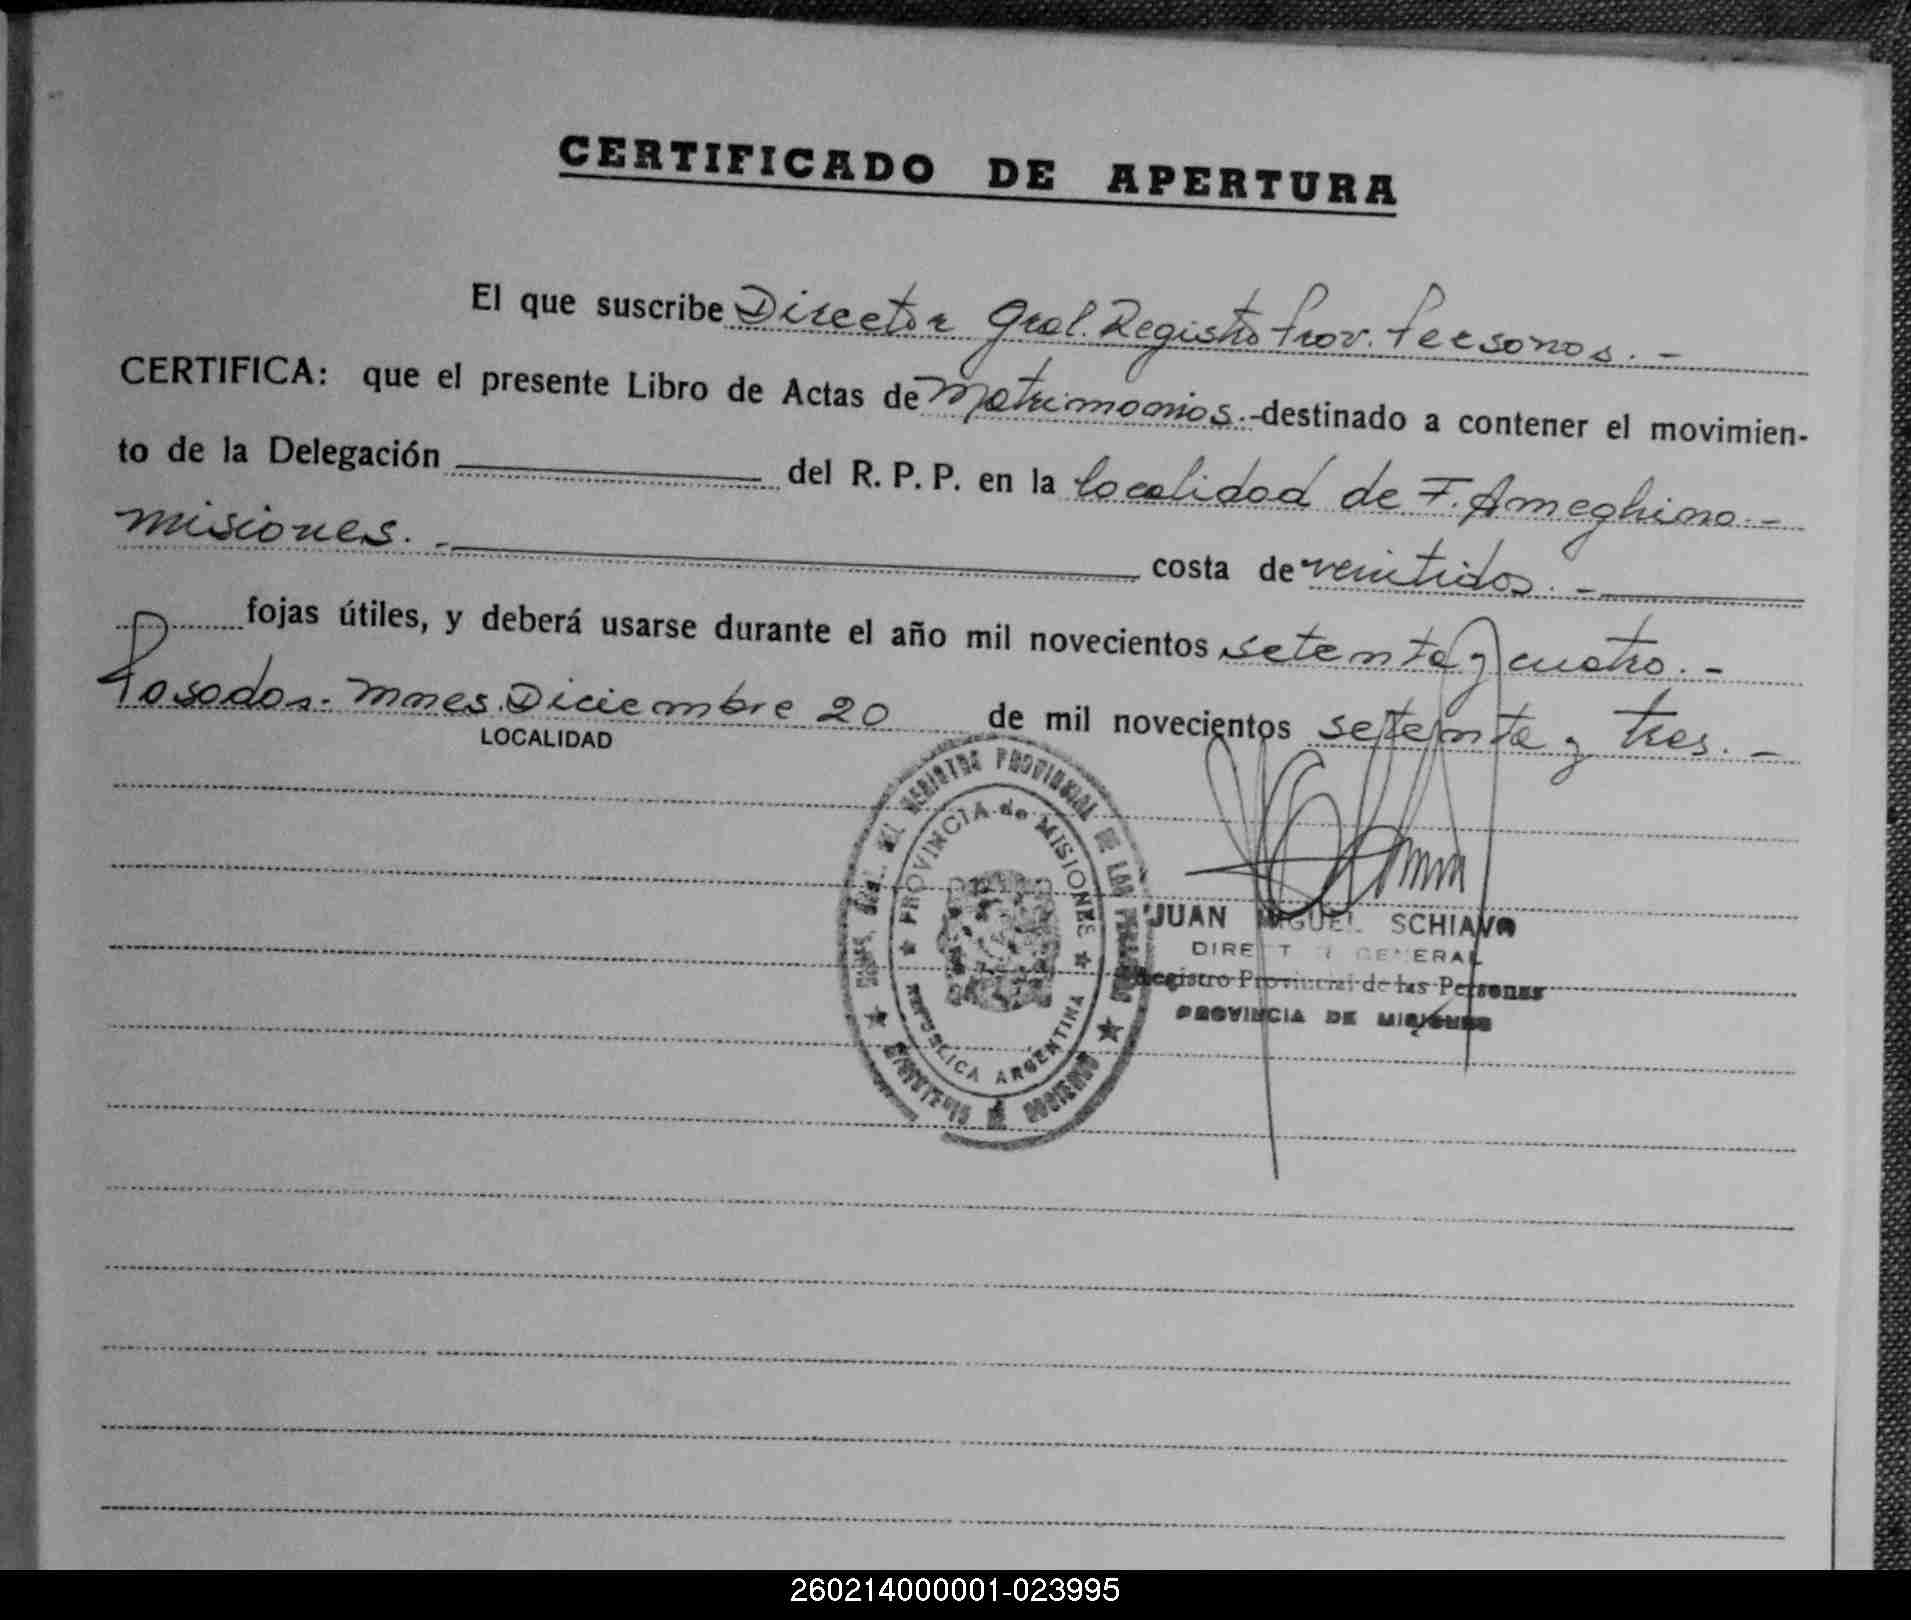 CERTIFICADO DE APERTURA
El que suscribe Director Gral. Registro Prov. Personas. -
CERTIFICA: que el presente Libro de Actas de Matrimonios.- destinado a contener el movimien-
to de la Delegación del R. P. P. en la localidad de F. Ameghino. -
misiones. - costa de veintidos. -
fojas útiles, y deberá usarse durante el año mil novecientos setenta y cuatro. -
Posadas. Mnes. Diciembre 20 de mil novecientos setenta y tres. -
LOCALIDAD
GRAL. DEL REGISTRO PROVINCIAL DE LAS PERSONAS
★ MINISTERIO DE GOBIERNO ★
★ PROVINCIA de MISIONES ★
REPUBLICA ARGENTINA
JUAN MIGUEL SCHIAVO
DIRECTOR GENERAL
Registro Provincial de las Personas
PROVINCIA DE MISIONES
260214000001-023995